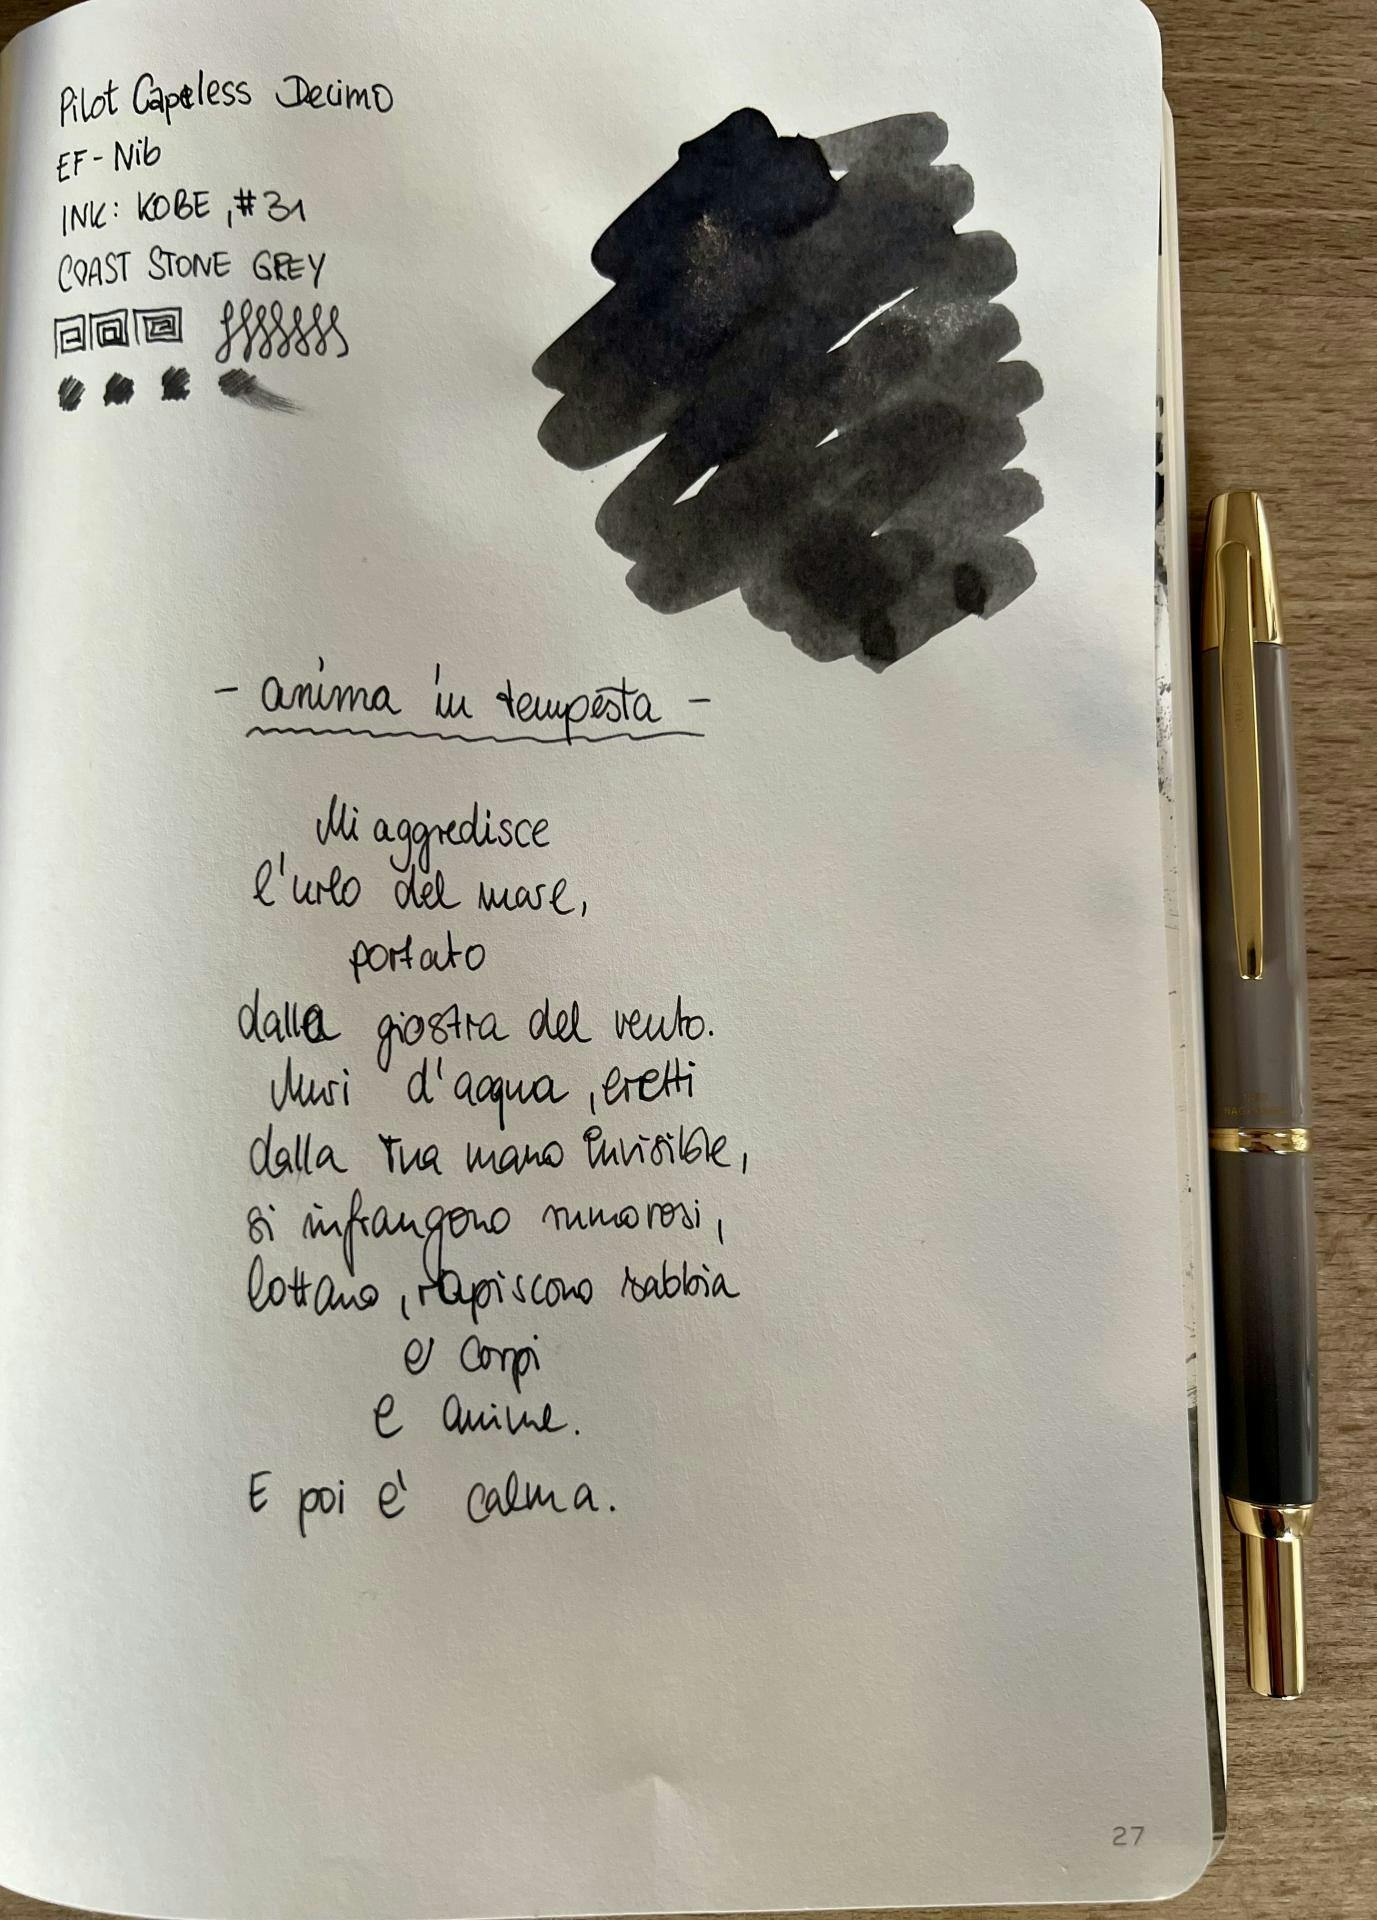 Pilot Capeless Decimo
EF-Nib
INK: KOBE, #31
COAST STONE GREY
- anima in tempesta -
Mi aggredisce
l'urlo del mare,
portato
dalla giostra del vento.
Muri d'acqua, eretti
dalla tua mano invisibile,
si infrangono rumorosi,
lottano, rapiscono sabbia
e corpi
e anime.
E poi e' calma.
27